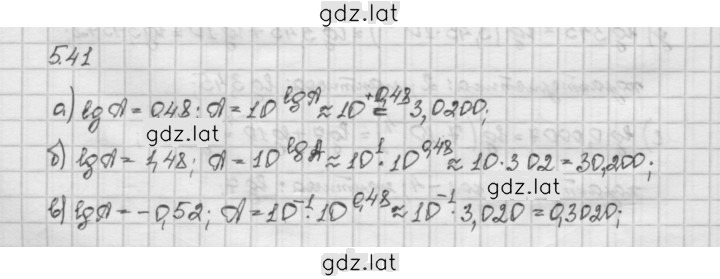 gdz.lat
5.41
а) lg A = 0,48: A = 10^lg A ≈ 10^+0,48 = 3,0200;
gdz.lat
б) lg A = 1,48; A = 10^lg A ≈ 10^1 · 10^0,48 ≈ 10 · 3 02 = 30,200;
gdz.lat
в) lg A = -0,52; A = 10^-1 · 10^0,48 ≈ 10^-1 · 3,020 = 0,3020;
gdz.lat